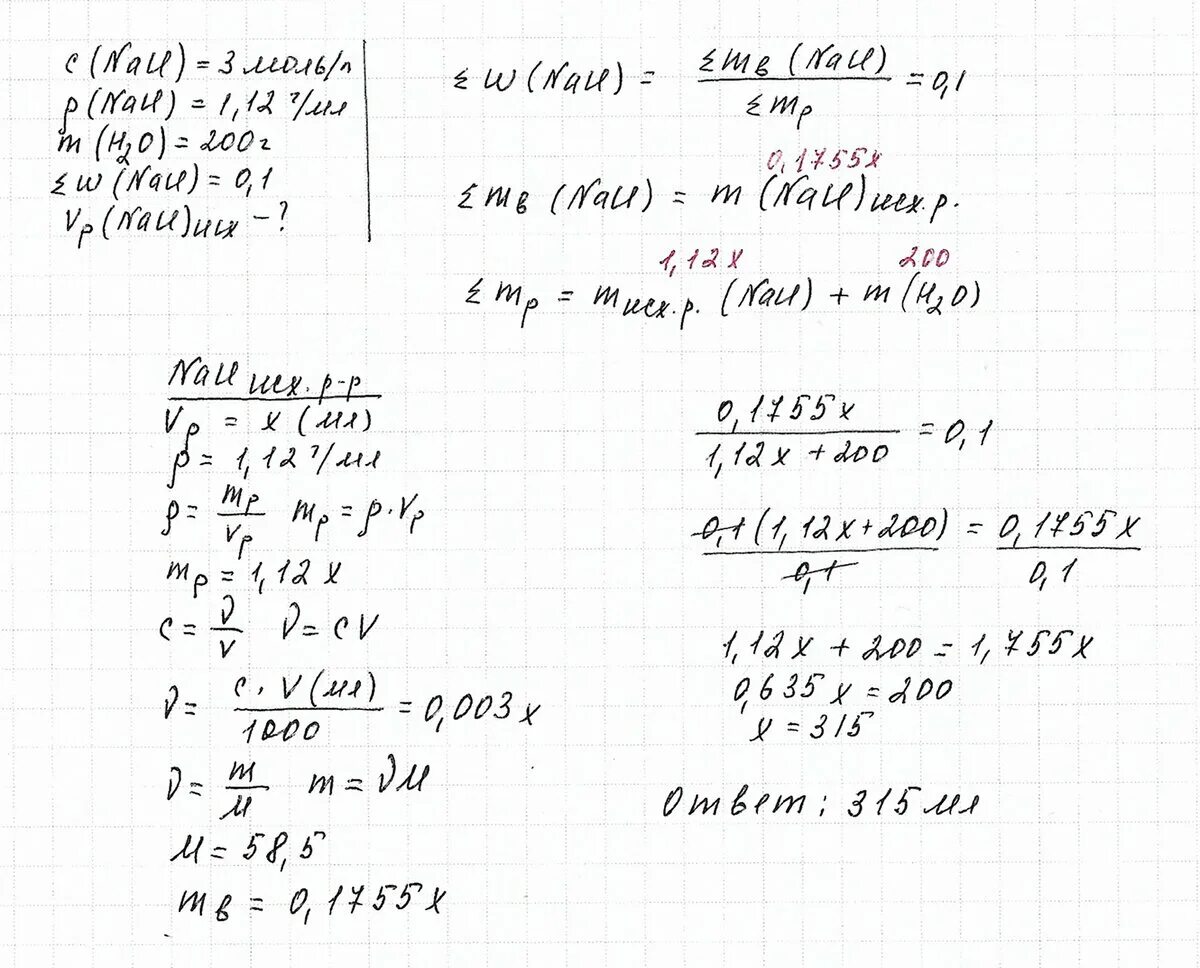 c (NaCl) = 3 моль/л
ρ (NaCl) = 1,12 г/мл
m (H₂O) = 200 г
Σ w (NaCl) = 0,1
Vр (NaCl) исх – ?
Σ w (NaCl) = Σ mв (NaCl) / Σ mр = 0,1
0,1755x
Σ mв (NaCl) = m (NaCl) исх. р.
1,12x 200
Σ mр = m исх. р. (NaCl) + m (H₂O)
NaCl исх. р-р
Vр = x (мл)
ρ = 1,12 г/мл
ρ = mр / Vр mр = ρ · Vр
mр = 1,12 x
c = ν / V ν = cV
ν = c · V (мл) / 1000 = 0,003 x
ν = m / M m = νM
M = 58,5
mв = 0,1755 x
0,1755x / 1,12x + 200 = 0,1
0,1 (1,12x + 200) / 0,1 = 0,1755x / 0,1
1,12x + 200 = 1,755x
0,635 x = 200
x = 315
Ответ: 315 мл